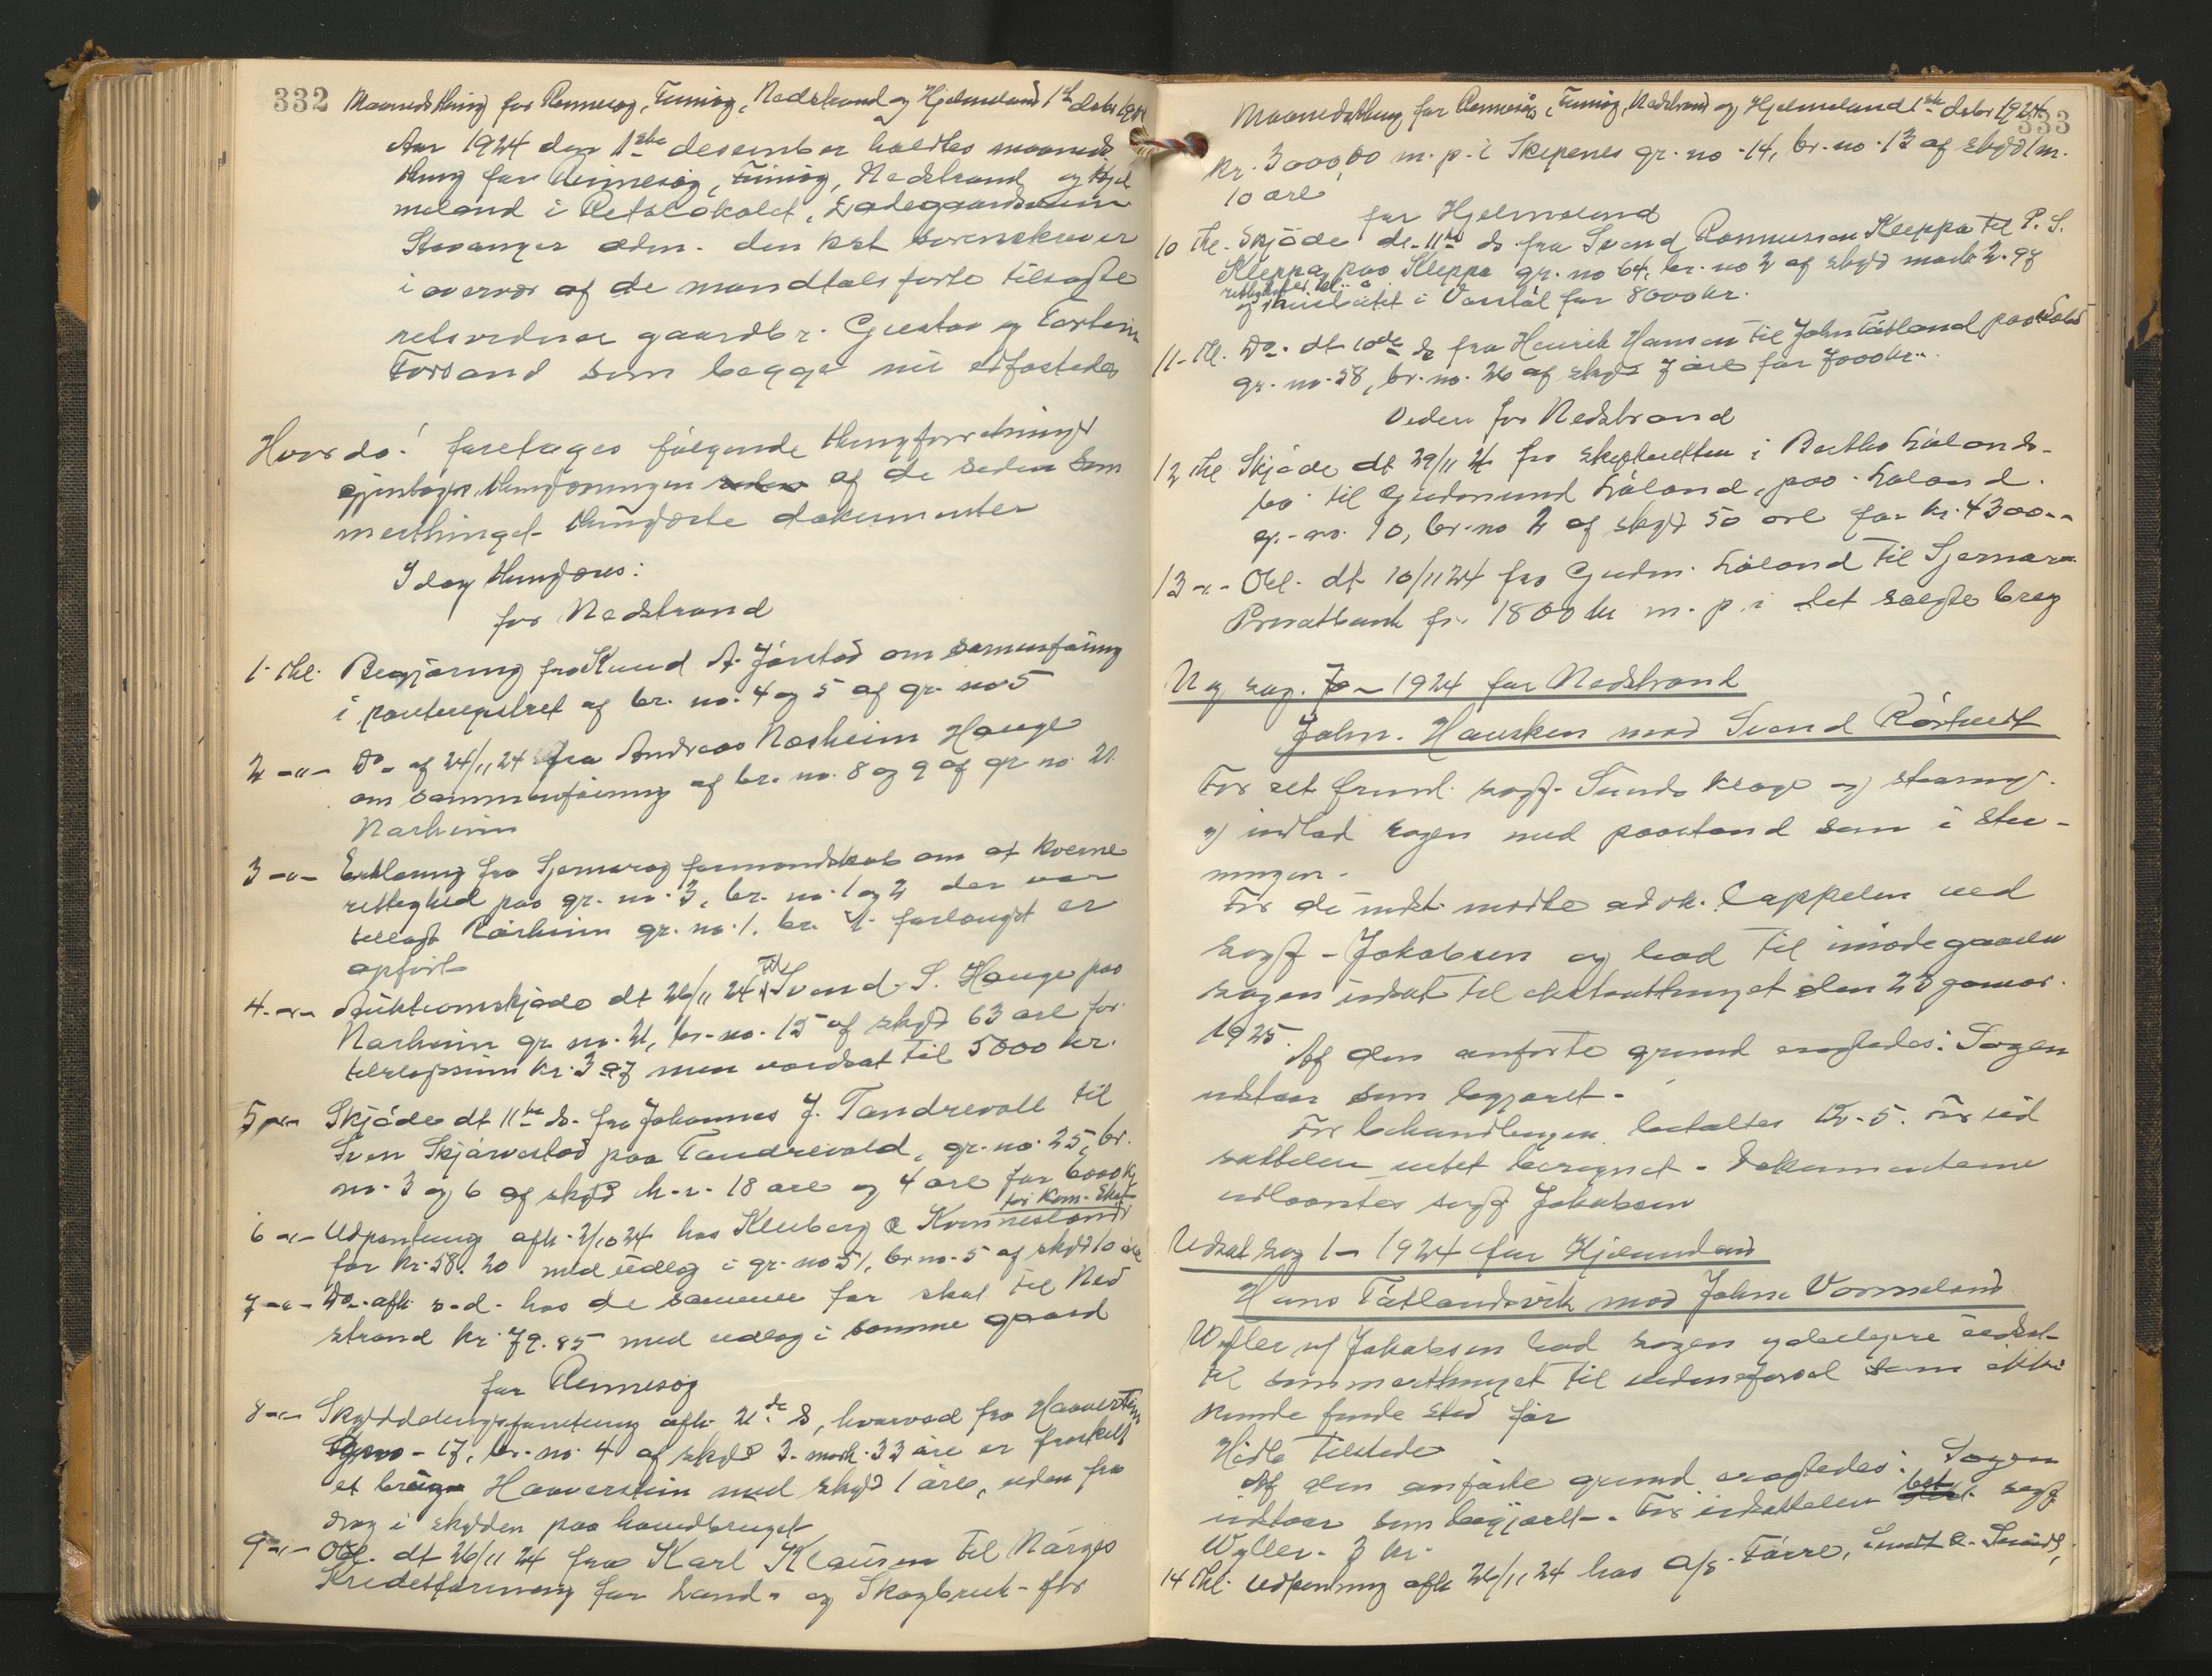 332 Maanedsthing for Rennesøy, Finnøy, Nedstrand og Hjelmeland 1ste debr 1924
Aar 1924 den 1ste desember holdtes maaneds
thing for Rennesøy, Finnøy, Nedstrand og Hjel
meland i Retslokalet, Ladegaardsveien
Stavanger adm. den kst sorenskriver
i overvær af de mandtalsførte tilsagte
retsvidner gaardbr. Gustav og Torbein
Forsand som begge nu edfæstedes
Hvorda! foretages følgende thingforretninger
gjentoges thinglæsningen af de siden som
merthinget thinglæste dokumenter
Idag thinglæses:
for Nedstrand
1. thl. Begjæring fra Knud A. Jørstad om sammenføining
i panteregistret af br. no. 4 og 5 af gr. no 5
2 -"- Do. af 24/11 24 fra Andreas Næsheim Hauge
om sammenføining af br. no. 8 og 9 af gr no. 21
Narheim
3 -"- Erklæring fra Sjernarøy formandskab om at kverne
rettighed paa gr. no. 3, br. no. 1 og 2 der var
tillagt Rørheim gr. no. 1. br. 1. forlængst er
ophørt
4. -"- Auktionsskjøde dt 26/11 24 til Svend S. Hauge paa
Narheim gr. no. 21, br. no. 15 af skyld 63 øre for
tilslagssum kr. 397 men værdsat til 5000 kr.
5 -"- Skjøde dt 11te ds. fra Johannes J. Tandrevold til
Sven Skjørvestad paa Tandrevold, gr. no. 25, br.
no. 3 og 6 af skyld h.v. 18 øre og 4 øre for 6000 kr
for Kom. Skat
6 -"- Udpantning afh. 2/10 24 hos Kleiberg & Kvinnesland
for kr. 58. 20 med udlæg i gr. no 51, br no. 5 af skyld 10 øre
7 -"- Do. afh. s.d. hos de samme for skat til Ned
strand kr. 79. 85 med udlæg i samme gaard
for Rennesøy
8 -"- Skylddelingsforretning afh. 21de ds, hvorved fra Haaverstein
gr. no - 17, br. no. 4 af skyld 3. mark. 33 øre er fraskilt
et brug Haaverstein med skyld 1 øre, uden fra
drag i skylden paa hovedbruget
9 -"- Obl. dt 26/11 24 fra Karl Klausen til Norges
Kreditforening for Land- og Skogbruk for
Maanedsthing for Rennesøy, Finnøy, Nedstrand og Hjelmeland 1ste debr 1924
333
kr. 3000,00 m. p. i Skipenes gr. no. 14, br. no. 13 af skyld 1 m.
10 øre
for Hjelmeland
10 thl. Skjøde dt. 11te ds fra Svend Rasmussen Kleppa til P. S.
Kleppa paa Kleppa gr. no 64, br. no 2 af skyld mark 2.97
rettigheter
og i Vormål for 8000 kr.
11. thl. Do. dt 10de ds fra Henrik Hansen til John Tøtland paa
gr. no. 58, br. no. 26 af skyld 7 øre for 7000 kr.
Videre for Nedstrand
12 thl Skjøde dt 29/11 24 fra skifteretten i Bertha Lålands
bo til Gudmund Låland, paa Låland.
gr. no. 10, br. no 2 af skyld 50 øre for kr. 4300.-
13 -"- Obl. dt 10/11 24 fra Gudm. Låland til Sjernarø
Privatbank for 1800 kr m. p. i det solgte brug
Ny sag. 7 - 1924 for Nedstrand
John. Hausken mod Svend Rørtvedt
For cit. freml. sagf. Sunds klage og stævning
og indlod sagen med paastand som i stev-
ningen.
For de indst. mødte advok. Cappelen ved
sagf. Jakobsen og bad til imødegaaelse
sagen udsat til ekstrathinget den 23 januar
1925.
Af den anførte grund eragtedes: Sagen
udstaar som begjæret.
For behandlingen betaltes kr. 5. For ud
sættelsen intet beregnet. Dokumenterne
udlaantes sagf Jakobsen
Udsat sag 1 - 1924 for Hjelmeland
Hans Tøtlandsvik mod John Vormeland
Wyller v/ Jakobsen bad sagen yderligere udsat
til sommerthinget til vidneførsel som ikke
kunde finde sted før
Hidle tilstede
Af den anførte grund eragtedes: Sagen
udstaar som begjært. For udsættelsen bet. sagf.
Wyller. 3 kr.
14 thl. Udpantning afh 26/11 24 hos A/S. Tørre, Lundt & Sund,